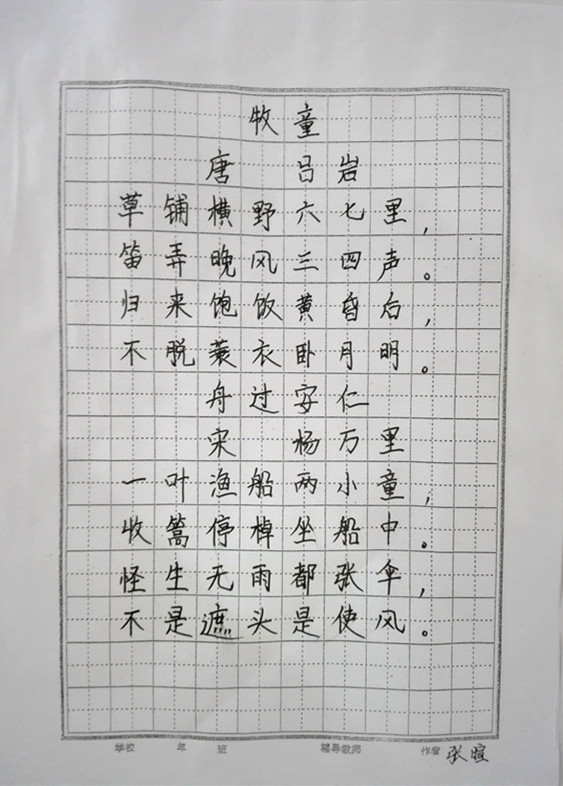 牧童
唐 吕岩
草铺横野六七里，
笛弄晚风三四声。
归来饱饭黄昏后，
不脱蓑衣卧月明。
舟过安仁
宋 杨万里
一叶渔船两小童，
收篙停棹坐船中。
怪生无雨都张伞，
不是遮头是使风。
学校 年 班 辅导教师 作者 张暄